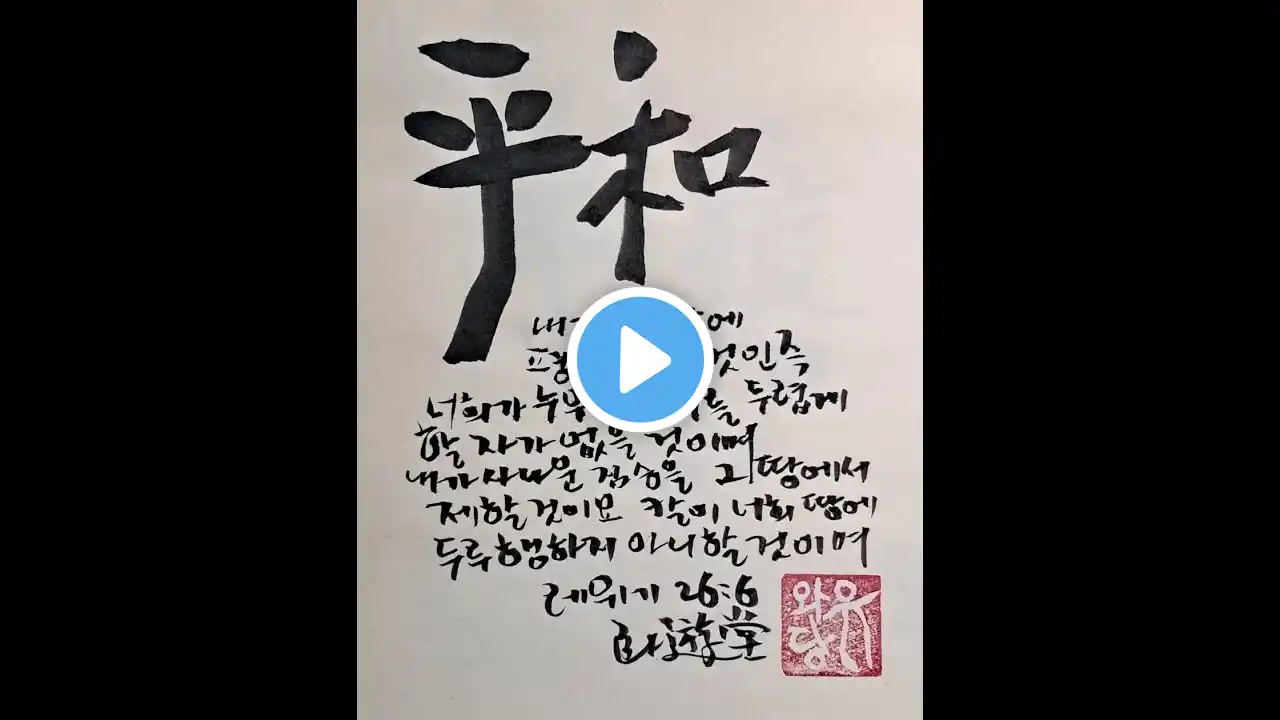 平和
것인즉
너희가 두렵게
할 자가 없을 것이며
내가 사나운 짐승을 그 땅에서
제할 것이요 칼이 너희 땅에
두루 행하지 아니할 것이며
레위기 26:6
臥遊堂
와유당